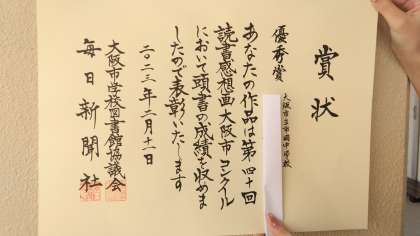 賞状
優秀賞
大阪市立市岡中学校
あなたの作品は第四十回
読書感想画大阪市コンクール
において頭書の成績を収めま
したので表彰いたします
二〇二三年二月十一日
大阪市学校図書館協議会
毎日新聞社